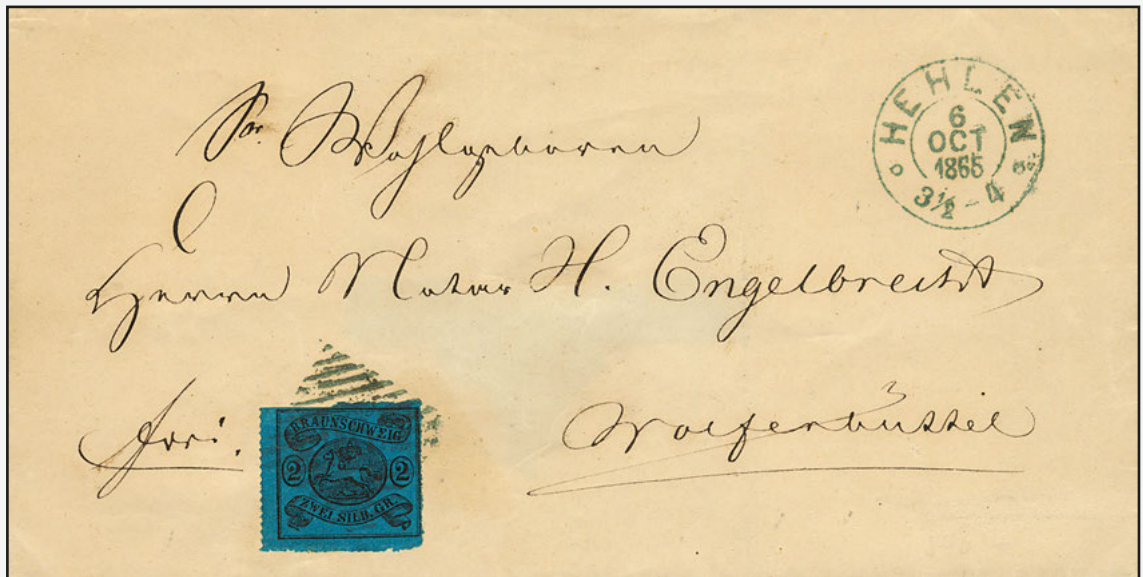 Sr. Wohlgeboren
HEHLEN
6
OCT
1865
3½-4
Herrn Notar H. Engelbrecht
frei.
Wolfenbüttel
BRAUNSCHWEIG
2 2
ZWEI SILB. GR.